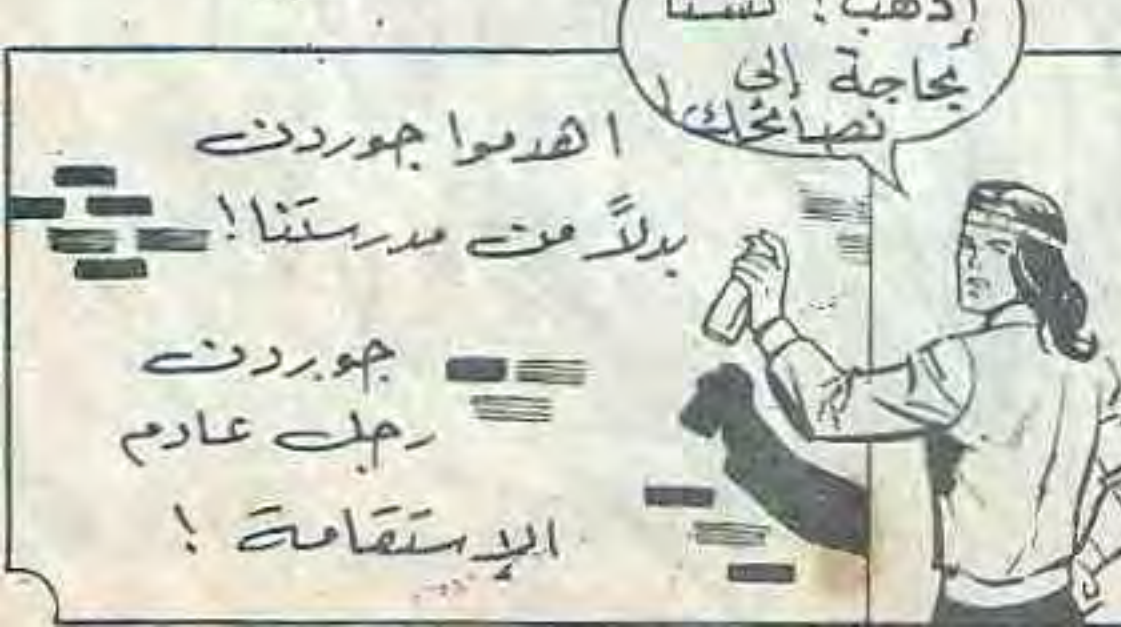 إذهب! لسنا
بحاجة إلى
نصائحك!
اهدموا جوردن
بدلاً من مدرستنا!
جوردن
رجل عادم
الإستقامة!